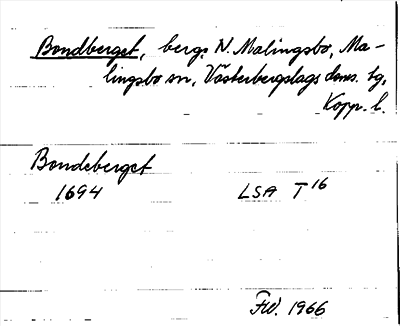 Bondberget, berg, N. Malingsbo, Ma-
lingsbo sn, Västerbergslags doms. tg,
Kopp. l.
Bondeberget
1694 LSA T16
1966